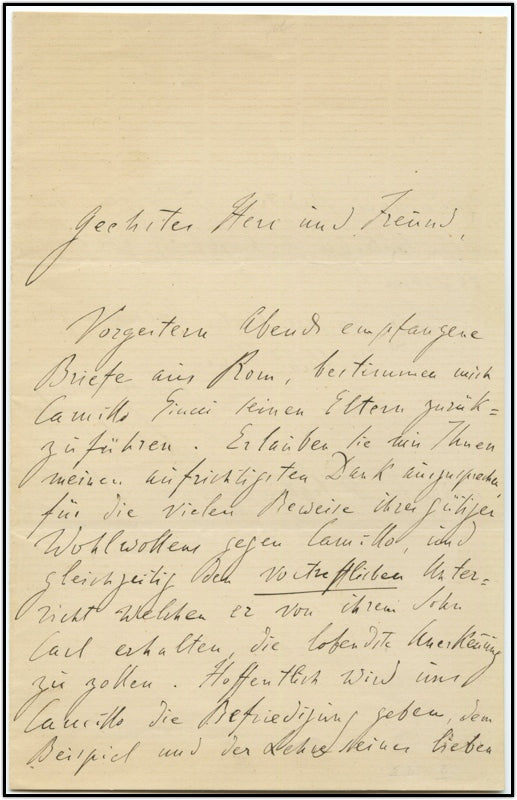 Geehrter Herr und Freund,
Vorgestern Abends empfangene
Briefe aus Rom, bestimmen mich
Camillo Giucci seinen Eltern zurük=
zuführen. Erlauben sie mir Ihnen
meinen aufrichtigsten Dank auszusprechen
für die vielen Beweise ihres gütigen
Wohlwollens gegen Camillo, und
gleichzeitig den vortrefflichen Unter=
richt welchen er von ihrem Sohn
Carl erhalten, die lobendste Anerkennung
zu zollen. Hoffentlich wird uns
Camillo die Befriedigung geben, dem
Beispiel und der Lehre seiner lieben